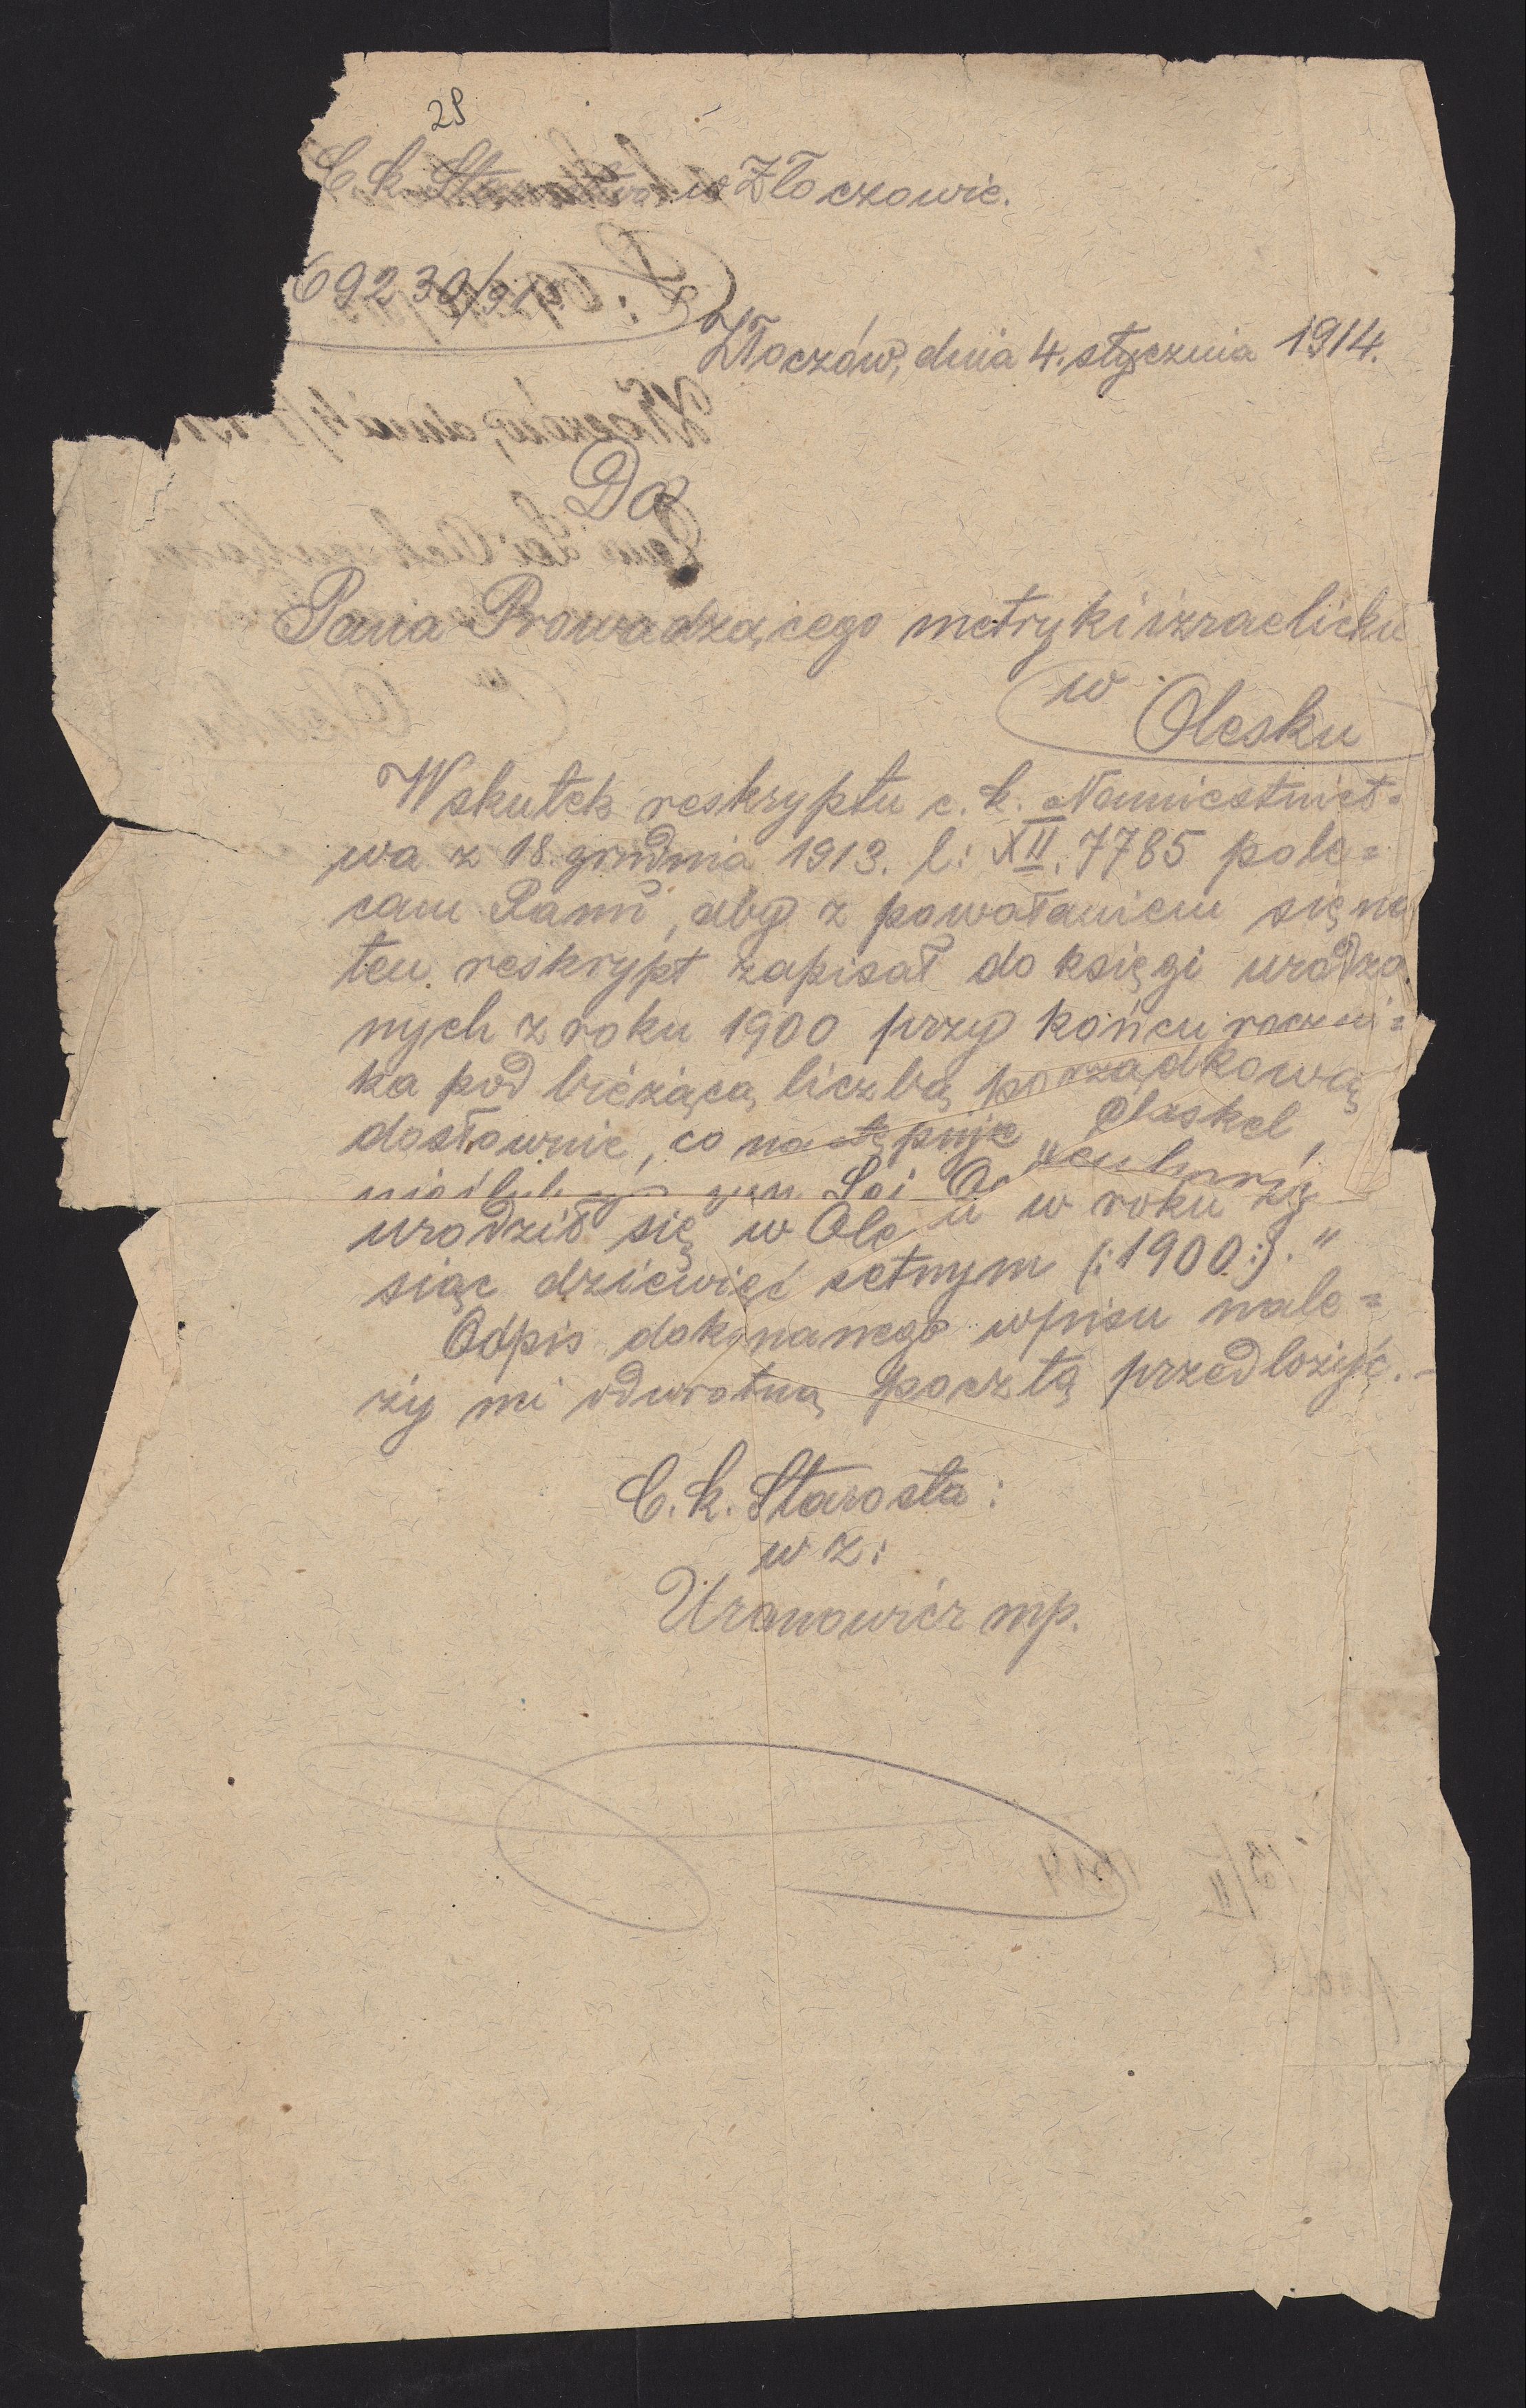 28
C. k. Starostwo w Złoczowie.
69230/913
Złoczów, dnia 4. stycznia 1914.
Do
Pana Prowadzącego metryki izraelickie
w
Olesku
Wskutek reskryptu c. k. Namiestnict=
wa z 18. grudnia 1913. l: XII. 7785 pole=
cam Panu, aby z powołaniem się na
ten reskrypt zapisał do księgi urodzo
nych z roku 1900 przy końcu roczni=
ka pod bieżącą liczbą porządkową
dosłownie, co następuje „Chaskel
syn Lei
urodził się w Ole u w roku ty
siąc dziewięć setnym (:1900:)."
Odpis dokonanego wpisu nale=
ży mi odwrotną pocztą przedłożyć.-
C. k. Starosta:
w z:
Uranowicz mp.